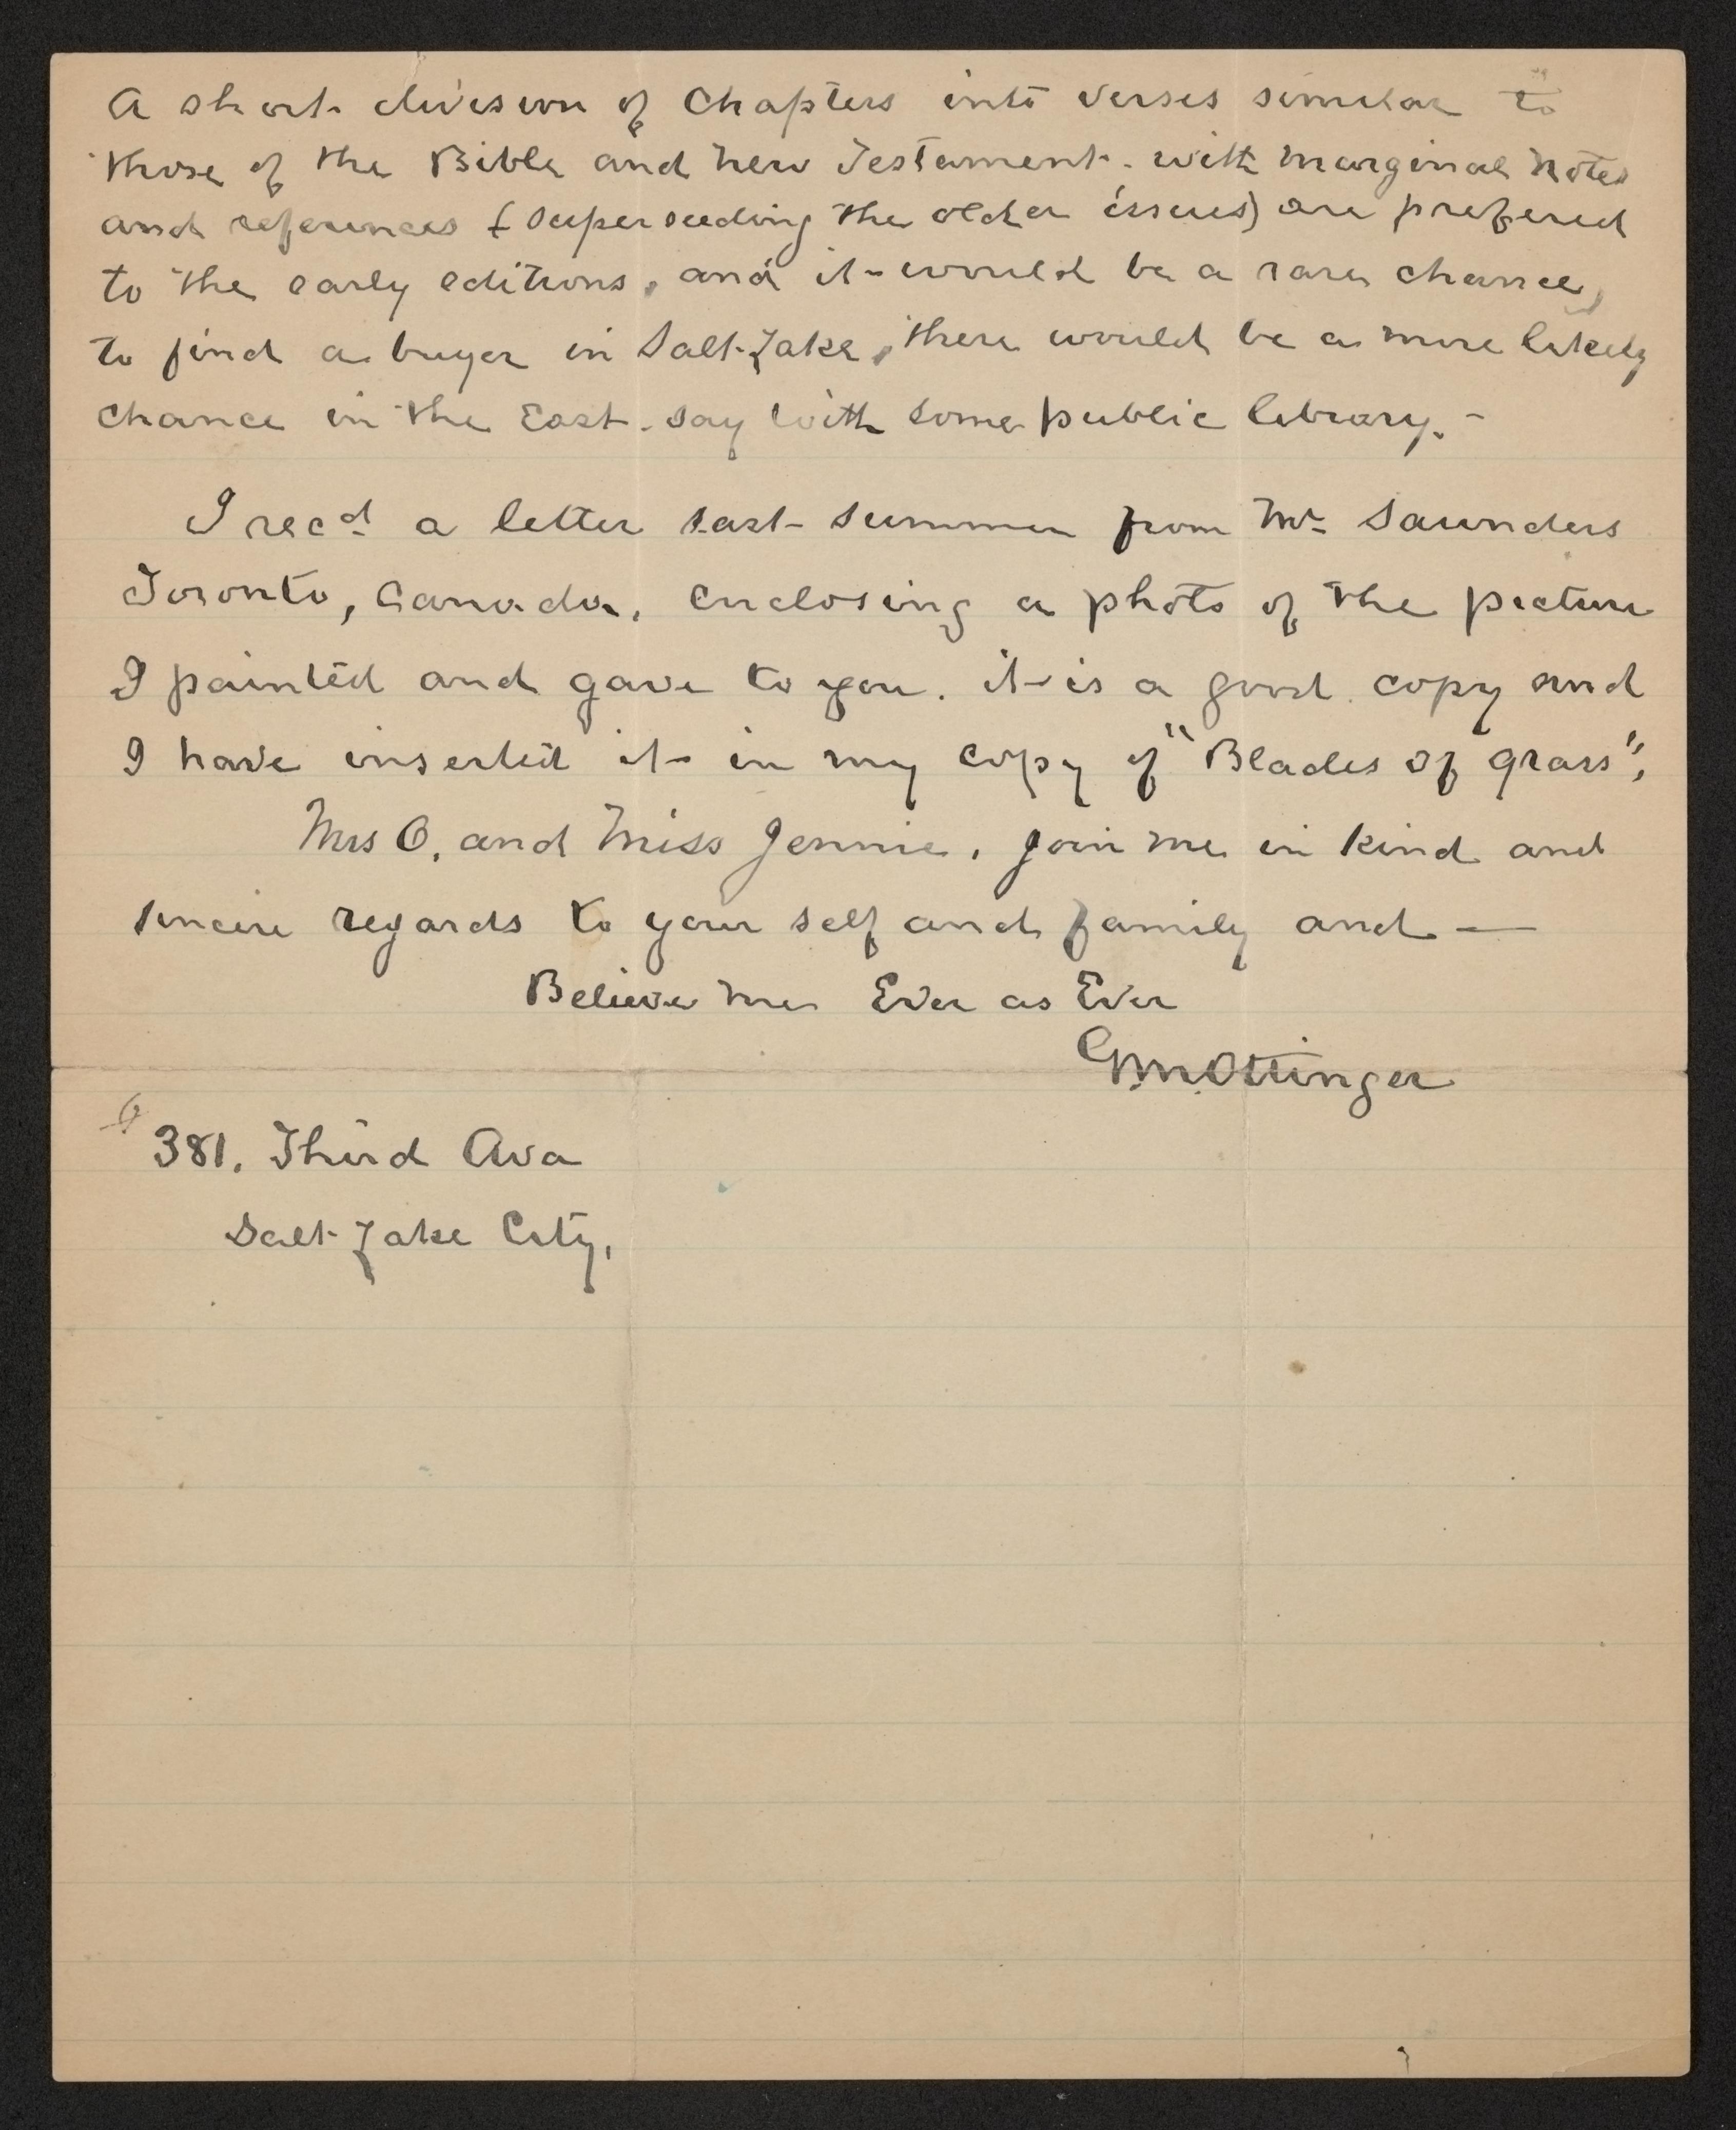 A short division of Chapters into verses similar to
those of the Bible and New Testament. with marginal notes
and references (superseeding the older issues) are prefered
to the early editions, and it would be a rare chance,
to find a buyer in Salt Lake, there would be a more likely
chance in the East. say with some public library. -
I recd a letter last summer from Mr Saunders
Toronto, Canada, enclosing a photo of the picture
I painted and gave to you. it is a good copy and
I have inserted it in my copy of "Blades of grass",
Mrs O, and Miss Jennie, join me in kind and
sincere regards to your self and family and —
Believe me Ever as Ever
GM Ottinger
381. Third Ave
Salt Lake City,